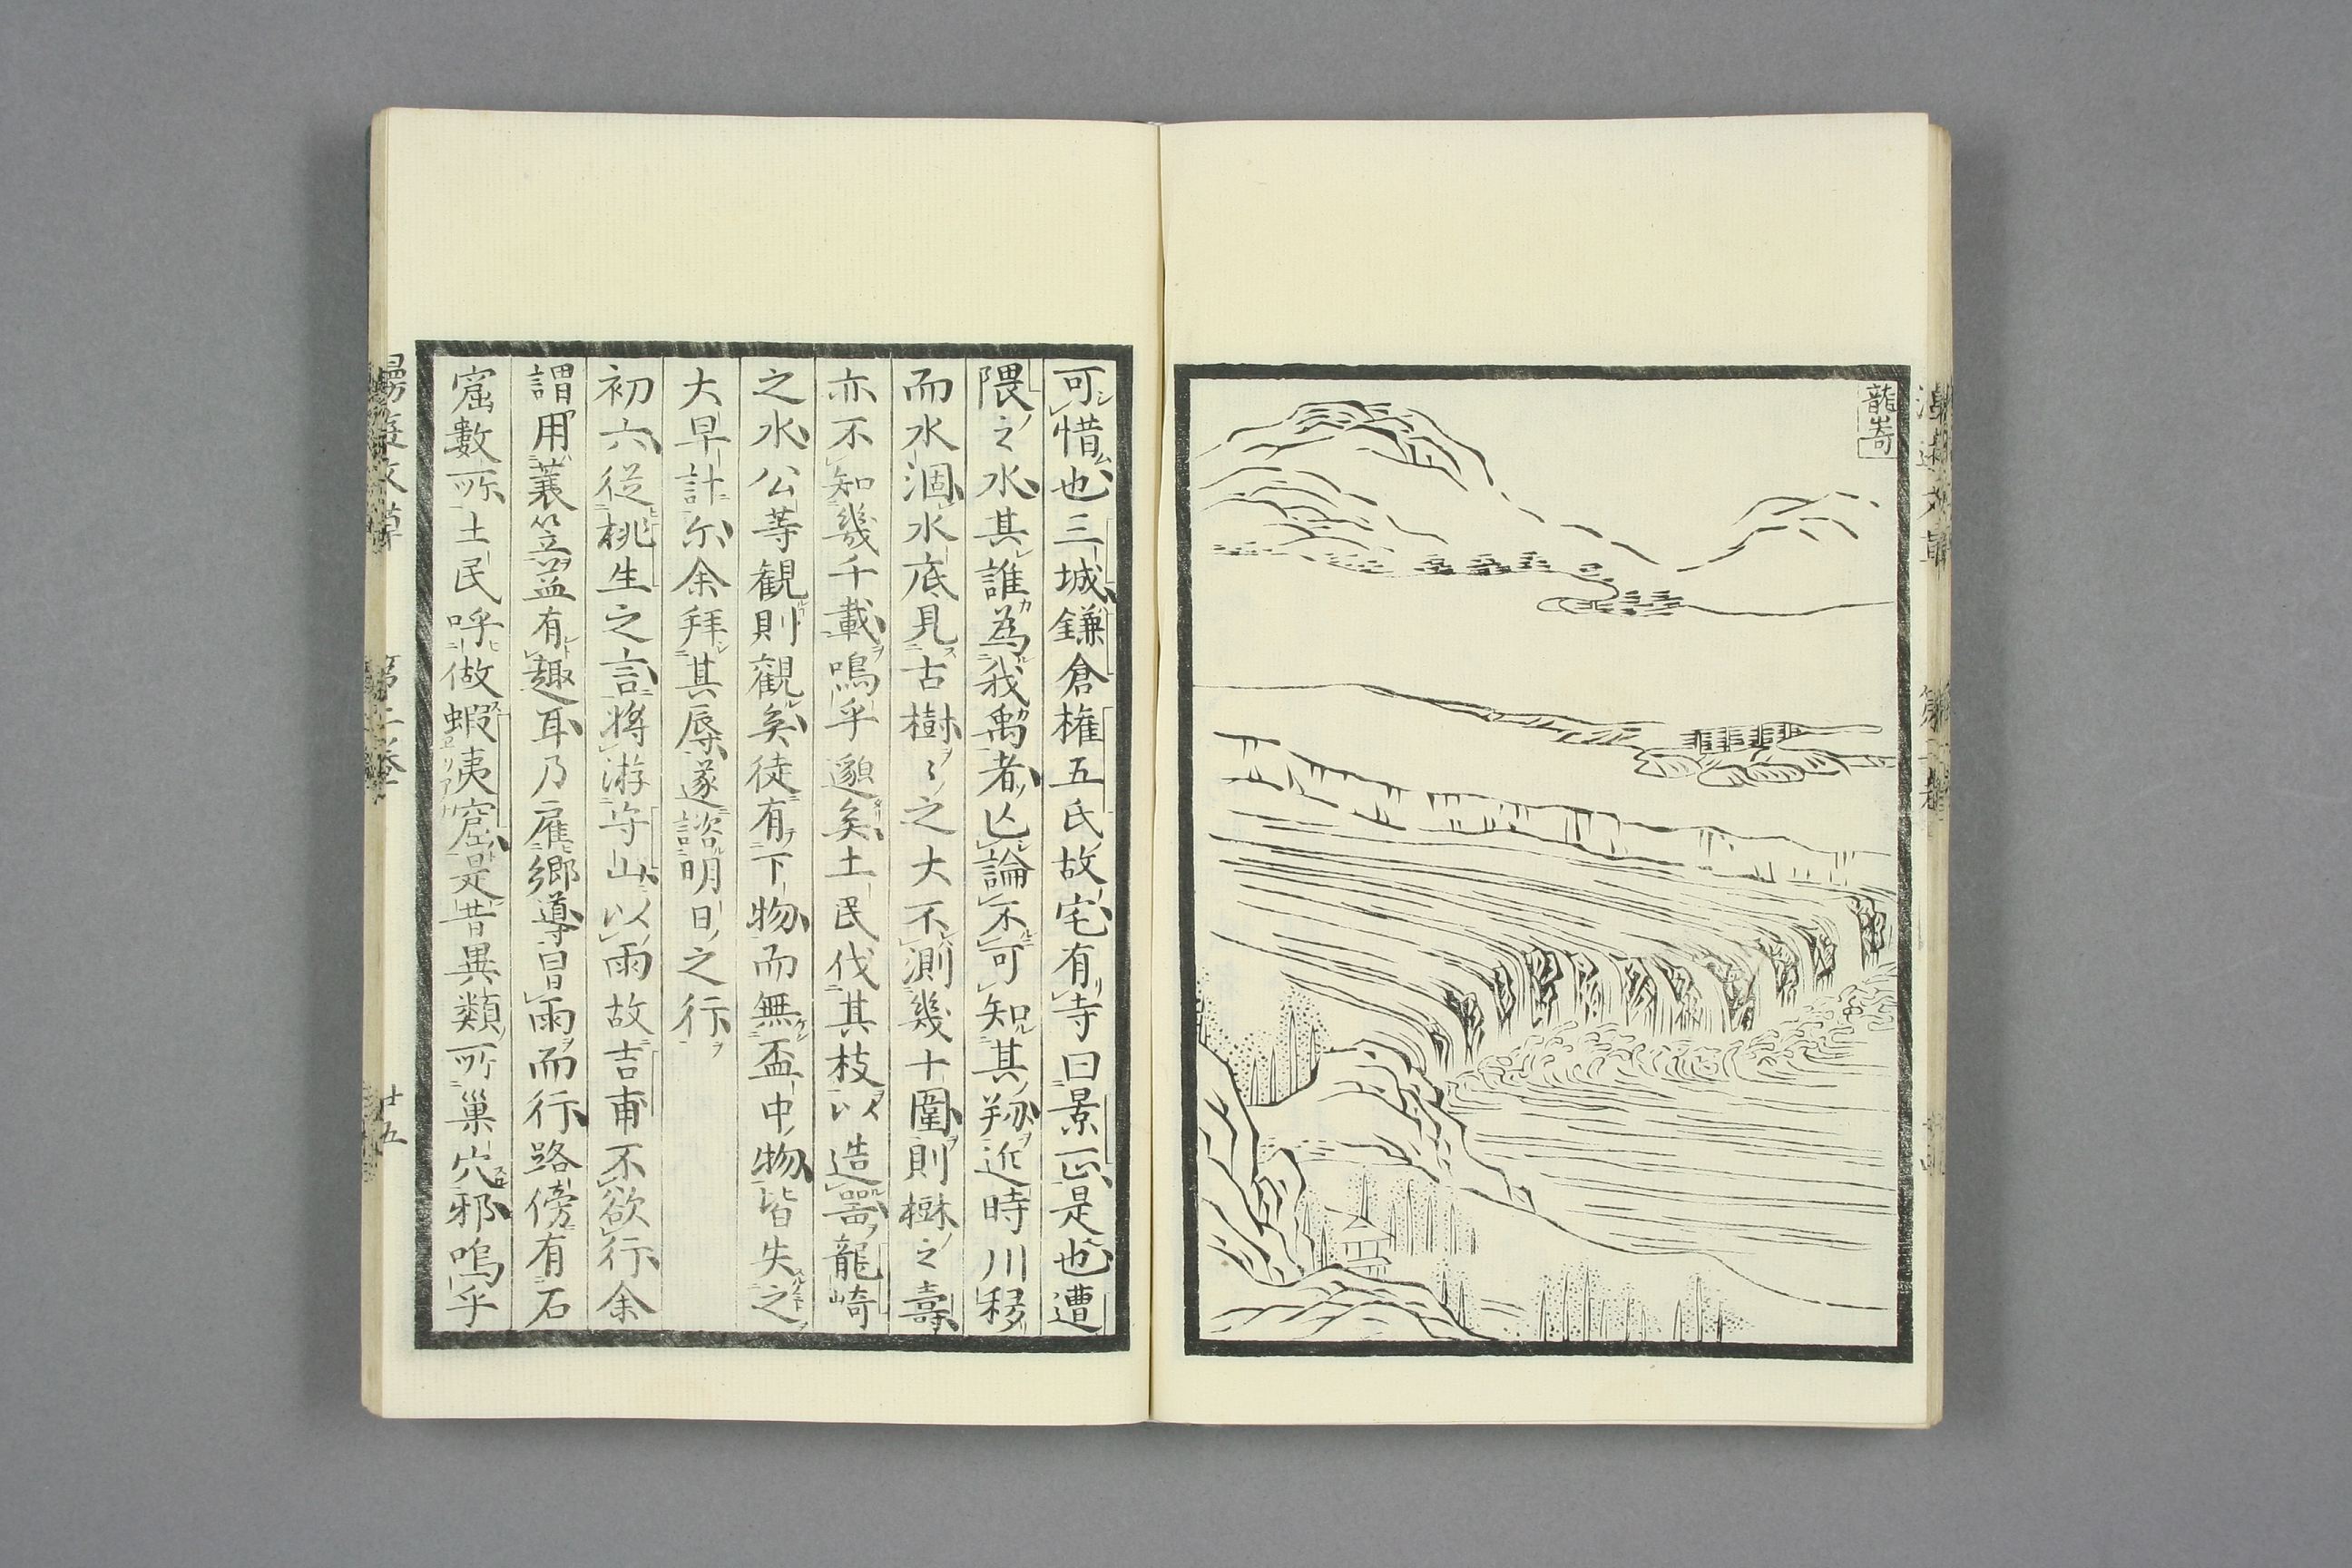 龍嵜
可惜也三城鎌倉権五氏故宅有寺曰景正是也遭
隈之水其誰為我禹者亾論不可知其翔近時川移
而水涸水底見古樹々之大不測幾十圍則樹之壽
亦不知幾千載嗚乎邈矣土民伐其枝以造噐龍崎
之水公等観則觀矣徒有下物而無盃中物皆失之
大早計尓余拜其辱遂諮明日之行
初六從桃生之言將游寺山以雨故吉甫不欲行余
謂用蓑笠益有趣耳乃雇鄉導冒雨而行路傍有石
窟數所土民呼做蝦夷窟是昔異類所巢穴邪嗚乎
漫遊文草
第二卷
廿五